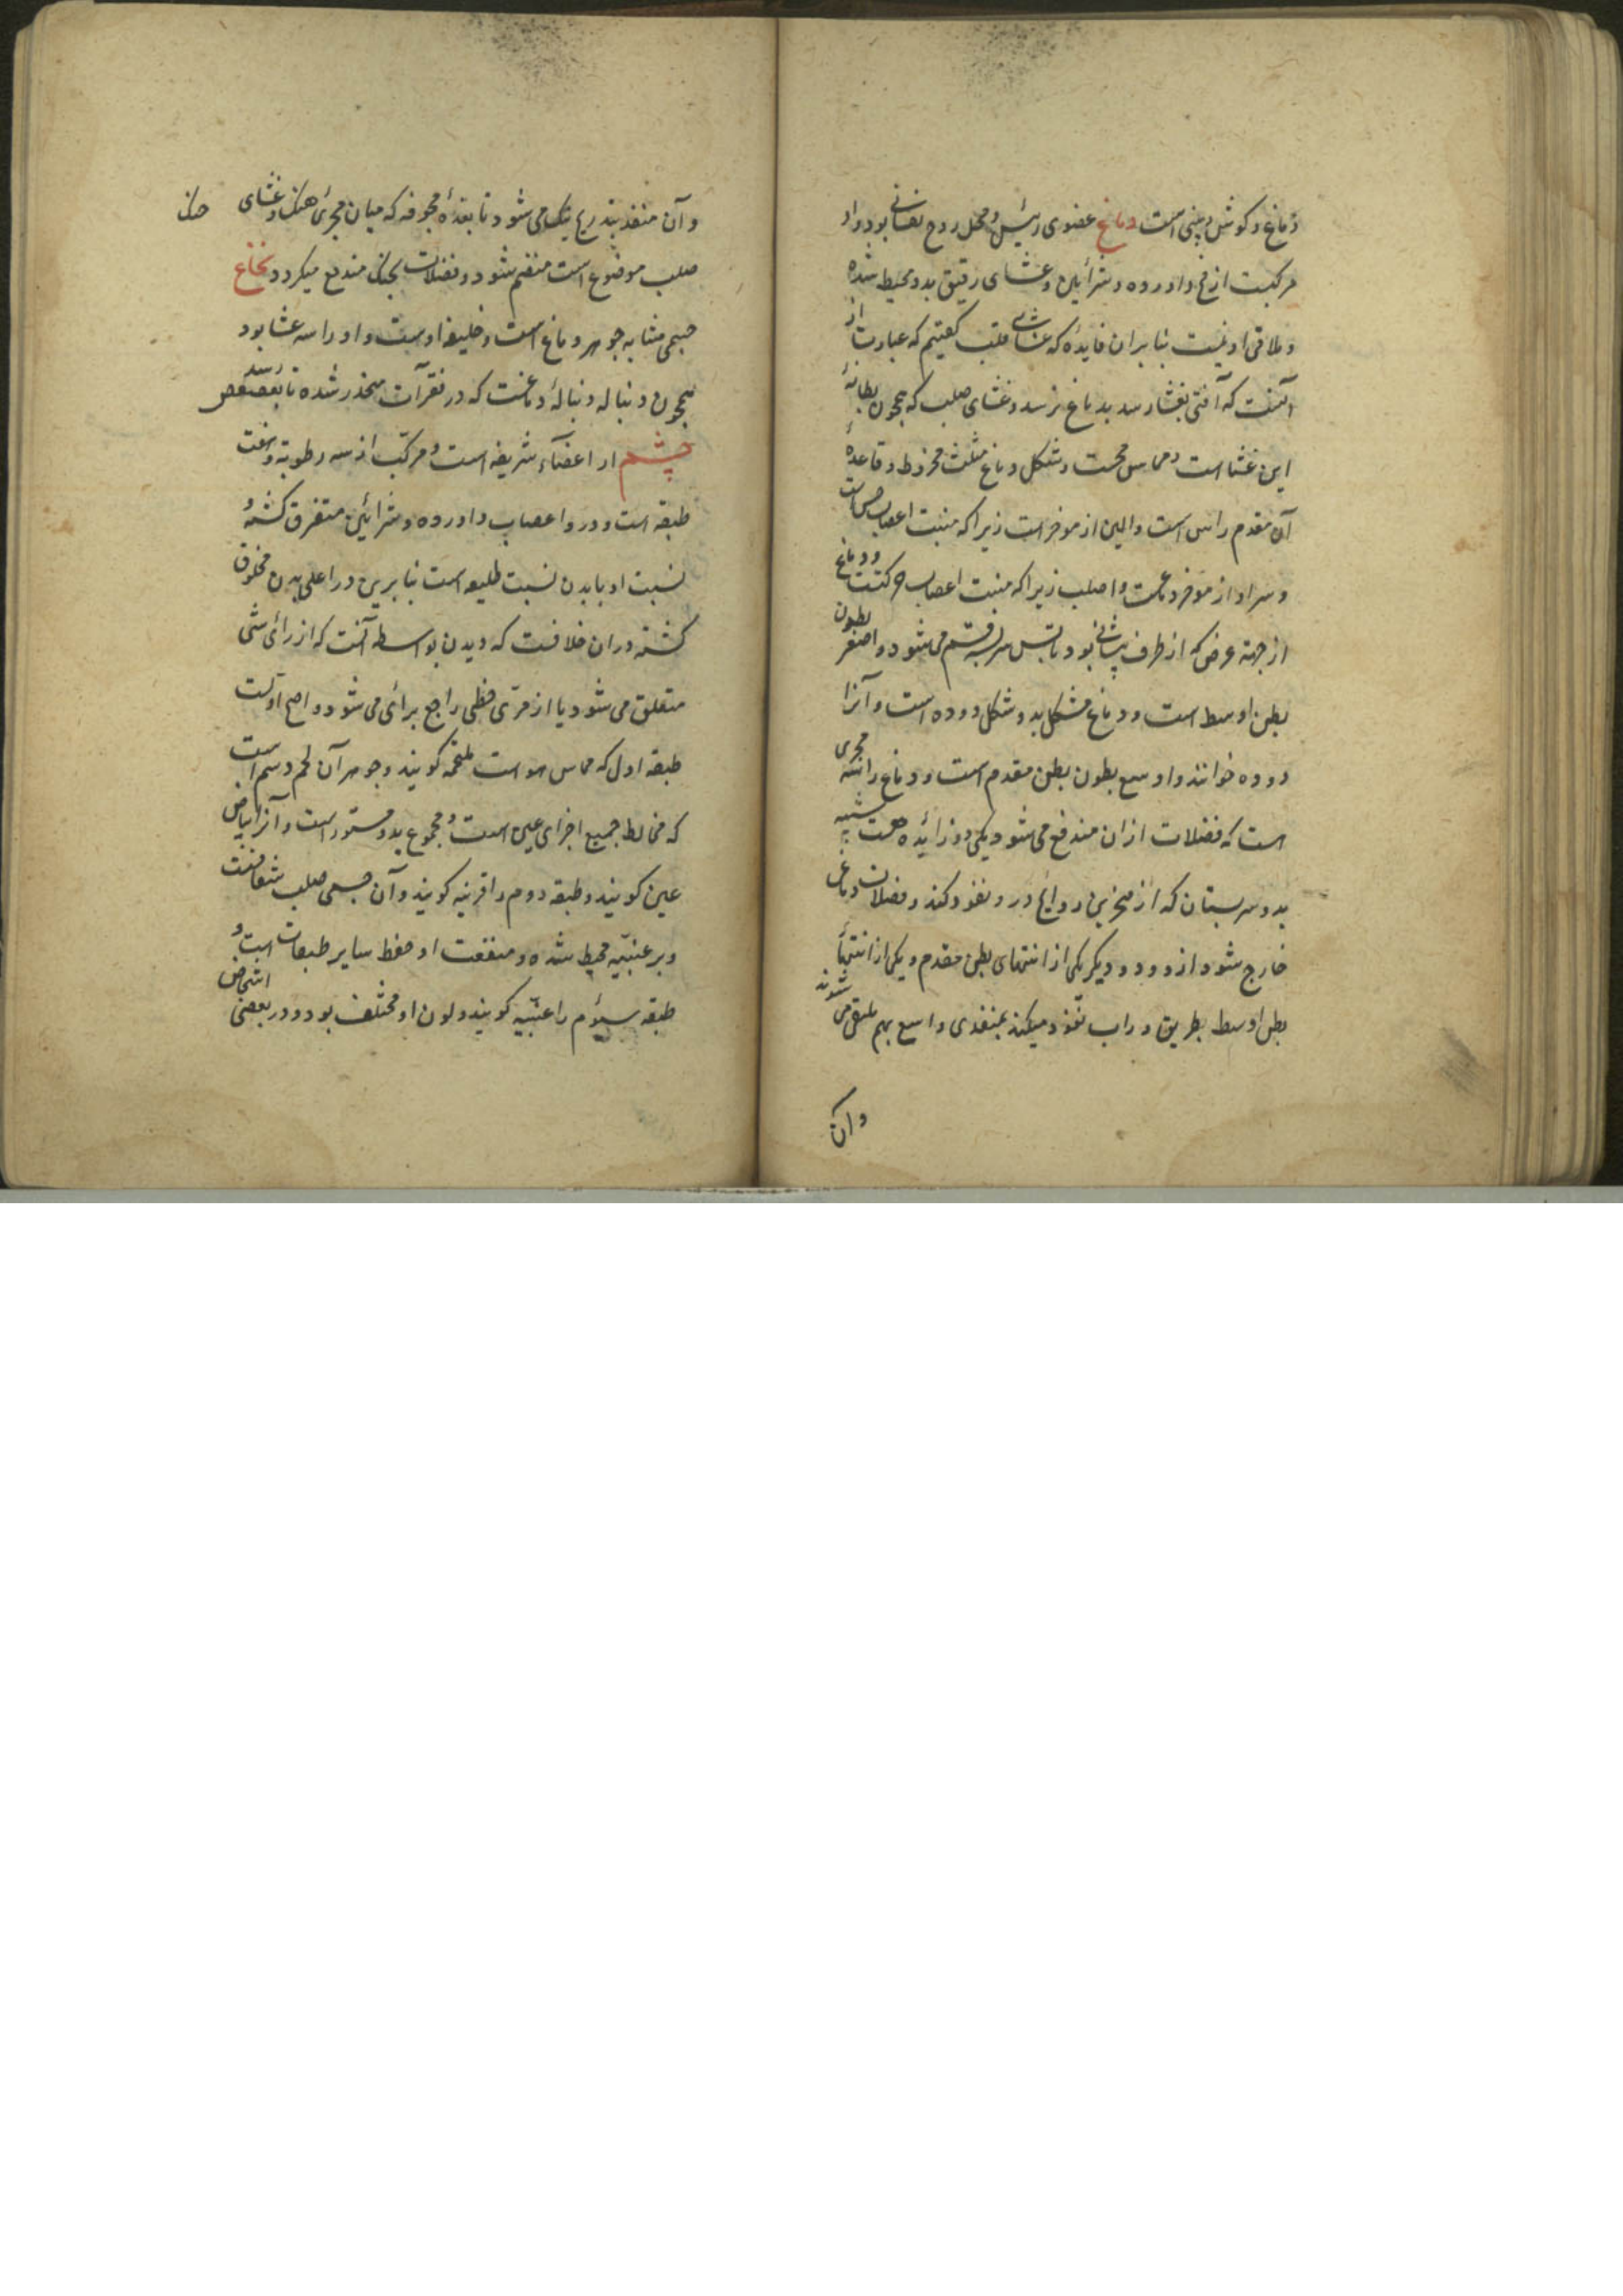 دماغ و کوش و بینی است دماغ عضوی رئیس و محل روح نفسانی بود و او
مرکبست از مخ و اورده و شرائین و غشای رقیق بدو محیط شده
و ملاقی او نیست بنابران فایده که غشای قلب کفتیم که عبارت از
آنست که آفتی بغشا رسد بدماغ نرسد و غشای صلب که همچون بطانهٔ
این غشا است و مماس مخست و شکل دماغ مثلث مخروط و قاعدهٔ
آن مقدم راس است و الین از موخر است زیرا که منبت اعصاب حس است
و سر او از موخر دماغست و اصلب زیرا که منبت اعصاب حرکتست و دماغ
از جهة عرض که از طرف پیشانی بود تا پس سر بسه قسم می شود و اصغر بطون
بطن اوسط است و دماغ مشکل بدو شکل دوده است و آنرا
دوده خوانند و اوسع بطون بطن مقدم است و دماغ را سه مجری
است که فضلات ازان مندفع می شود یکی دو زائده هست شبیه
بدو سر پستان که از منخرین روایح درو نفوذ کند و فضلات دماغی
خارج شود ازو و دو دیکر یکی از انتهای بطن مقدم و یکی از انتهاء
بطن اوسط بطریق وراب نفوذ میکند بمنفذی واسع بهم ملتقی می شوند
وآن
وآن منفذ بتدریج تنک می شود تا بغدهٔ مجوفه که میان مجرئ حنک و غشای
صلب موضوع است منضم شود و فضلات بحنک مندفع میکردد نخاع
جسمی مشابه جوهر دماغ است و خلیفه اوست و او را سه غشا بود
همچون دنباله و دنبالهٔ دماغست که در فقرات منحدر شده تا بعصعص رسد
چشم از اعضاء شریفه است و مرکب از سه رطوبة و هفت
طبقه است و درو اعصاب و اورده و شرائین متفرق کشته و
نسبت او با بدن نسبت طلیعه است بنابرین در اعلی بدن مخلوق
کشته و دران خلافست که دیدن بواسطه آنست که از رائی شئی
متعلق می شود یا از مرئی خطی راجع برائی می شود و اصح اولست
طبقه اول که مماس هواست ملتحمه کویند و جوهر آن لحم دسم است
که مخالط جمیع اجزای عین است و مجموع بدو مستور است و آنرا بیاض
عین کویند و طبقه دوم را قرنیه کویند و آن جسمی صلب شفافست
و بر عنبیه محیط شده و منفعت او حفظ سایر طبقات است و
طبقه سیوم را عنبیه کویند و لون او مختلف بود و در بعضی اشخاص